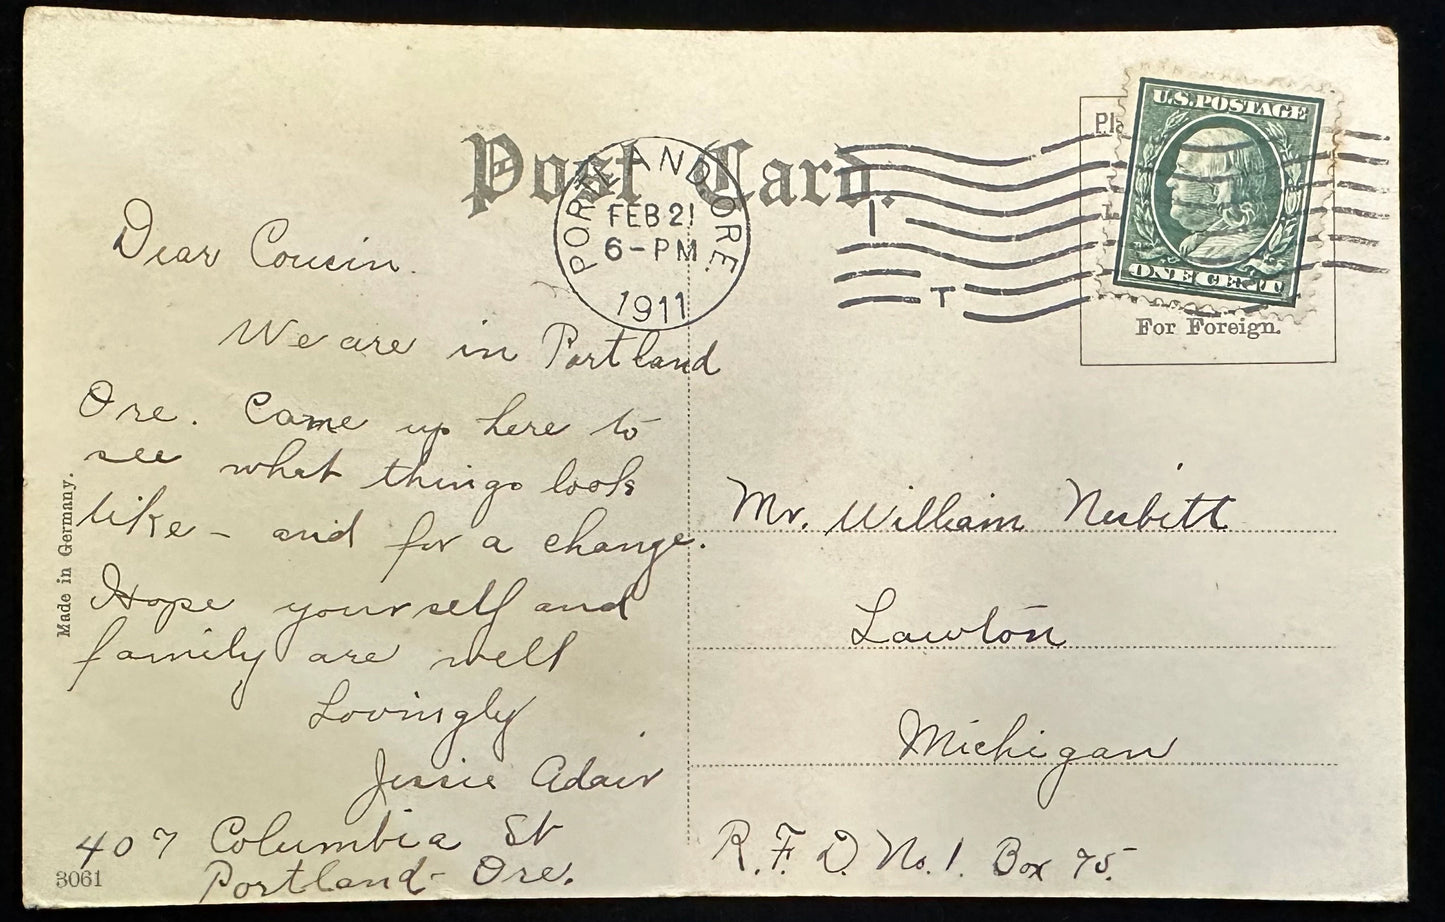 Post Card.
PORTLAND ORE.
FEB 21
6-PM
1911
T
U.S.POSTAGE
ONE CENT
For Foreign.
Dear Cousin.
We are in Portland
Ore. Came up here to
see what things look
like - and for a change.
Hope yourself and
family are well
Lovingly
Jessie Adair
407 Columbia St
Portland - Ore.
Mr. William Nesbitt
Lawton
Michigan
R.F.D. No.1. Box 75.
Made in Germany.
3061